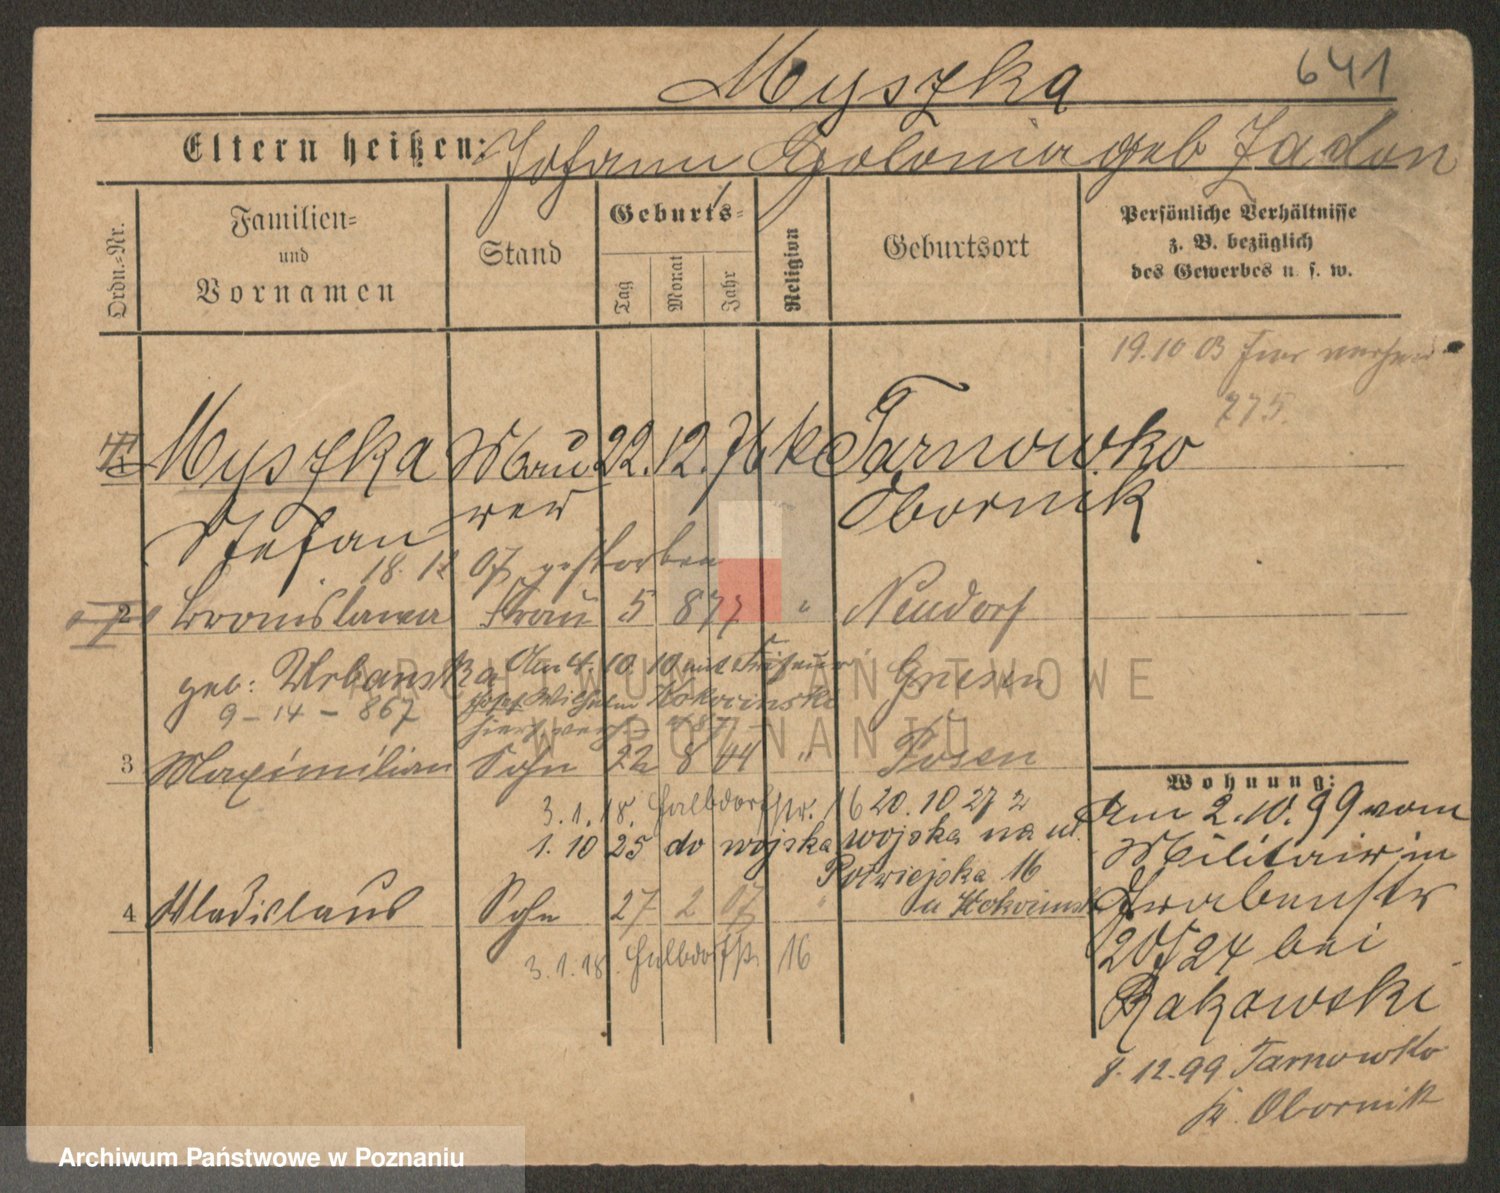 Myszka
641
Eltern heißen: Johann Apolonia geb Zadon
Ordn.-Nr.
Familien-
und
Vornamen
Stand
Geburts-
Tag
Monat
Jahr
Religion
Geburtsort
Persönliche Verhältnisse
z. B. bezüglich
des Gewerbes u. s. w.
19.10 03 hier
275.
1 Myszka Mau 22. 12. 76 k Tarnowko
Stefan rer Obornik
18. 12 07 gestorben
2 Bronislawa Frau 5 877 " Neudorf
geb: Urbanska Am 4. 10. 10 mit Friseur Gnesen
9 - 14 - 867 Wilhelm Kokocinski
3 Maximilian Sohn 22 8 01 " Posen
3.1.18. Halbdorfstr. 16 20. 10 27 z
1. 10 25 do wojska wojska na ul.
Półwiejska 16
4 Wladislaus Sohn 27 2 07 " u Kokocinski
3.1.18. Halbdorfstr. 16
Wohnung:
Am 2.10.99 vom
Militair in
Grabenstr
bei
Rakowski
8.12.99 Tarnowko
Kr. Obornik
ARCHIWUM PAŃSTWOWE
W POZNANIU
Archiwum Państwowe w Poznaniu